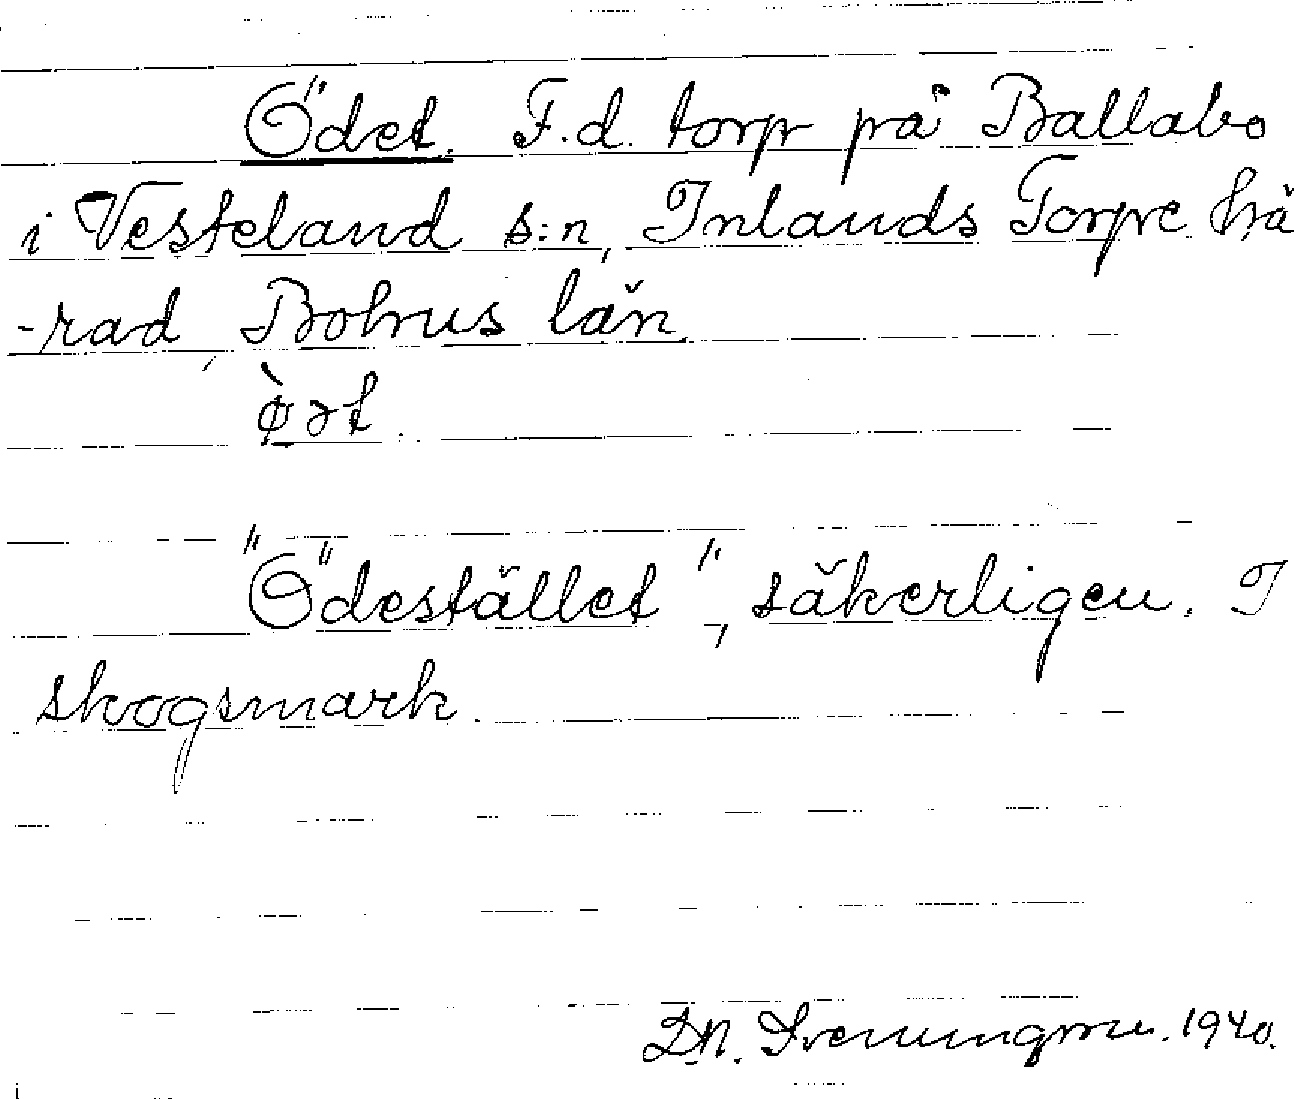 Ödet. F.d. torp på Ballabo
i Vesteland s:n, Inlands Torpe hä
-rad, Bohus län.
ø̀ət.
"Ödestället", säkerligen. I
skogsmark.
D.N. Svenungsson. 1940.